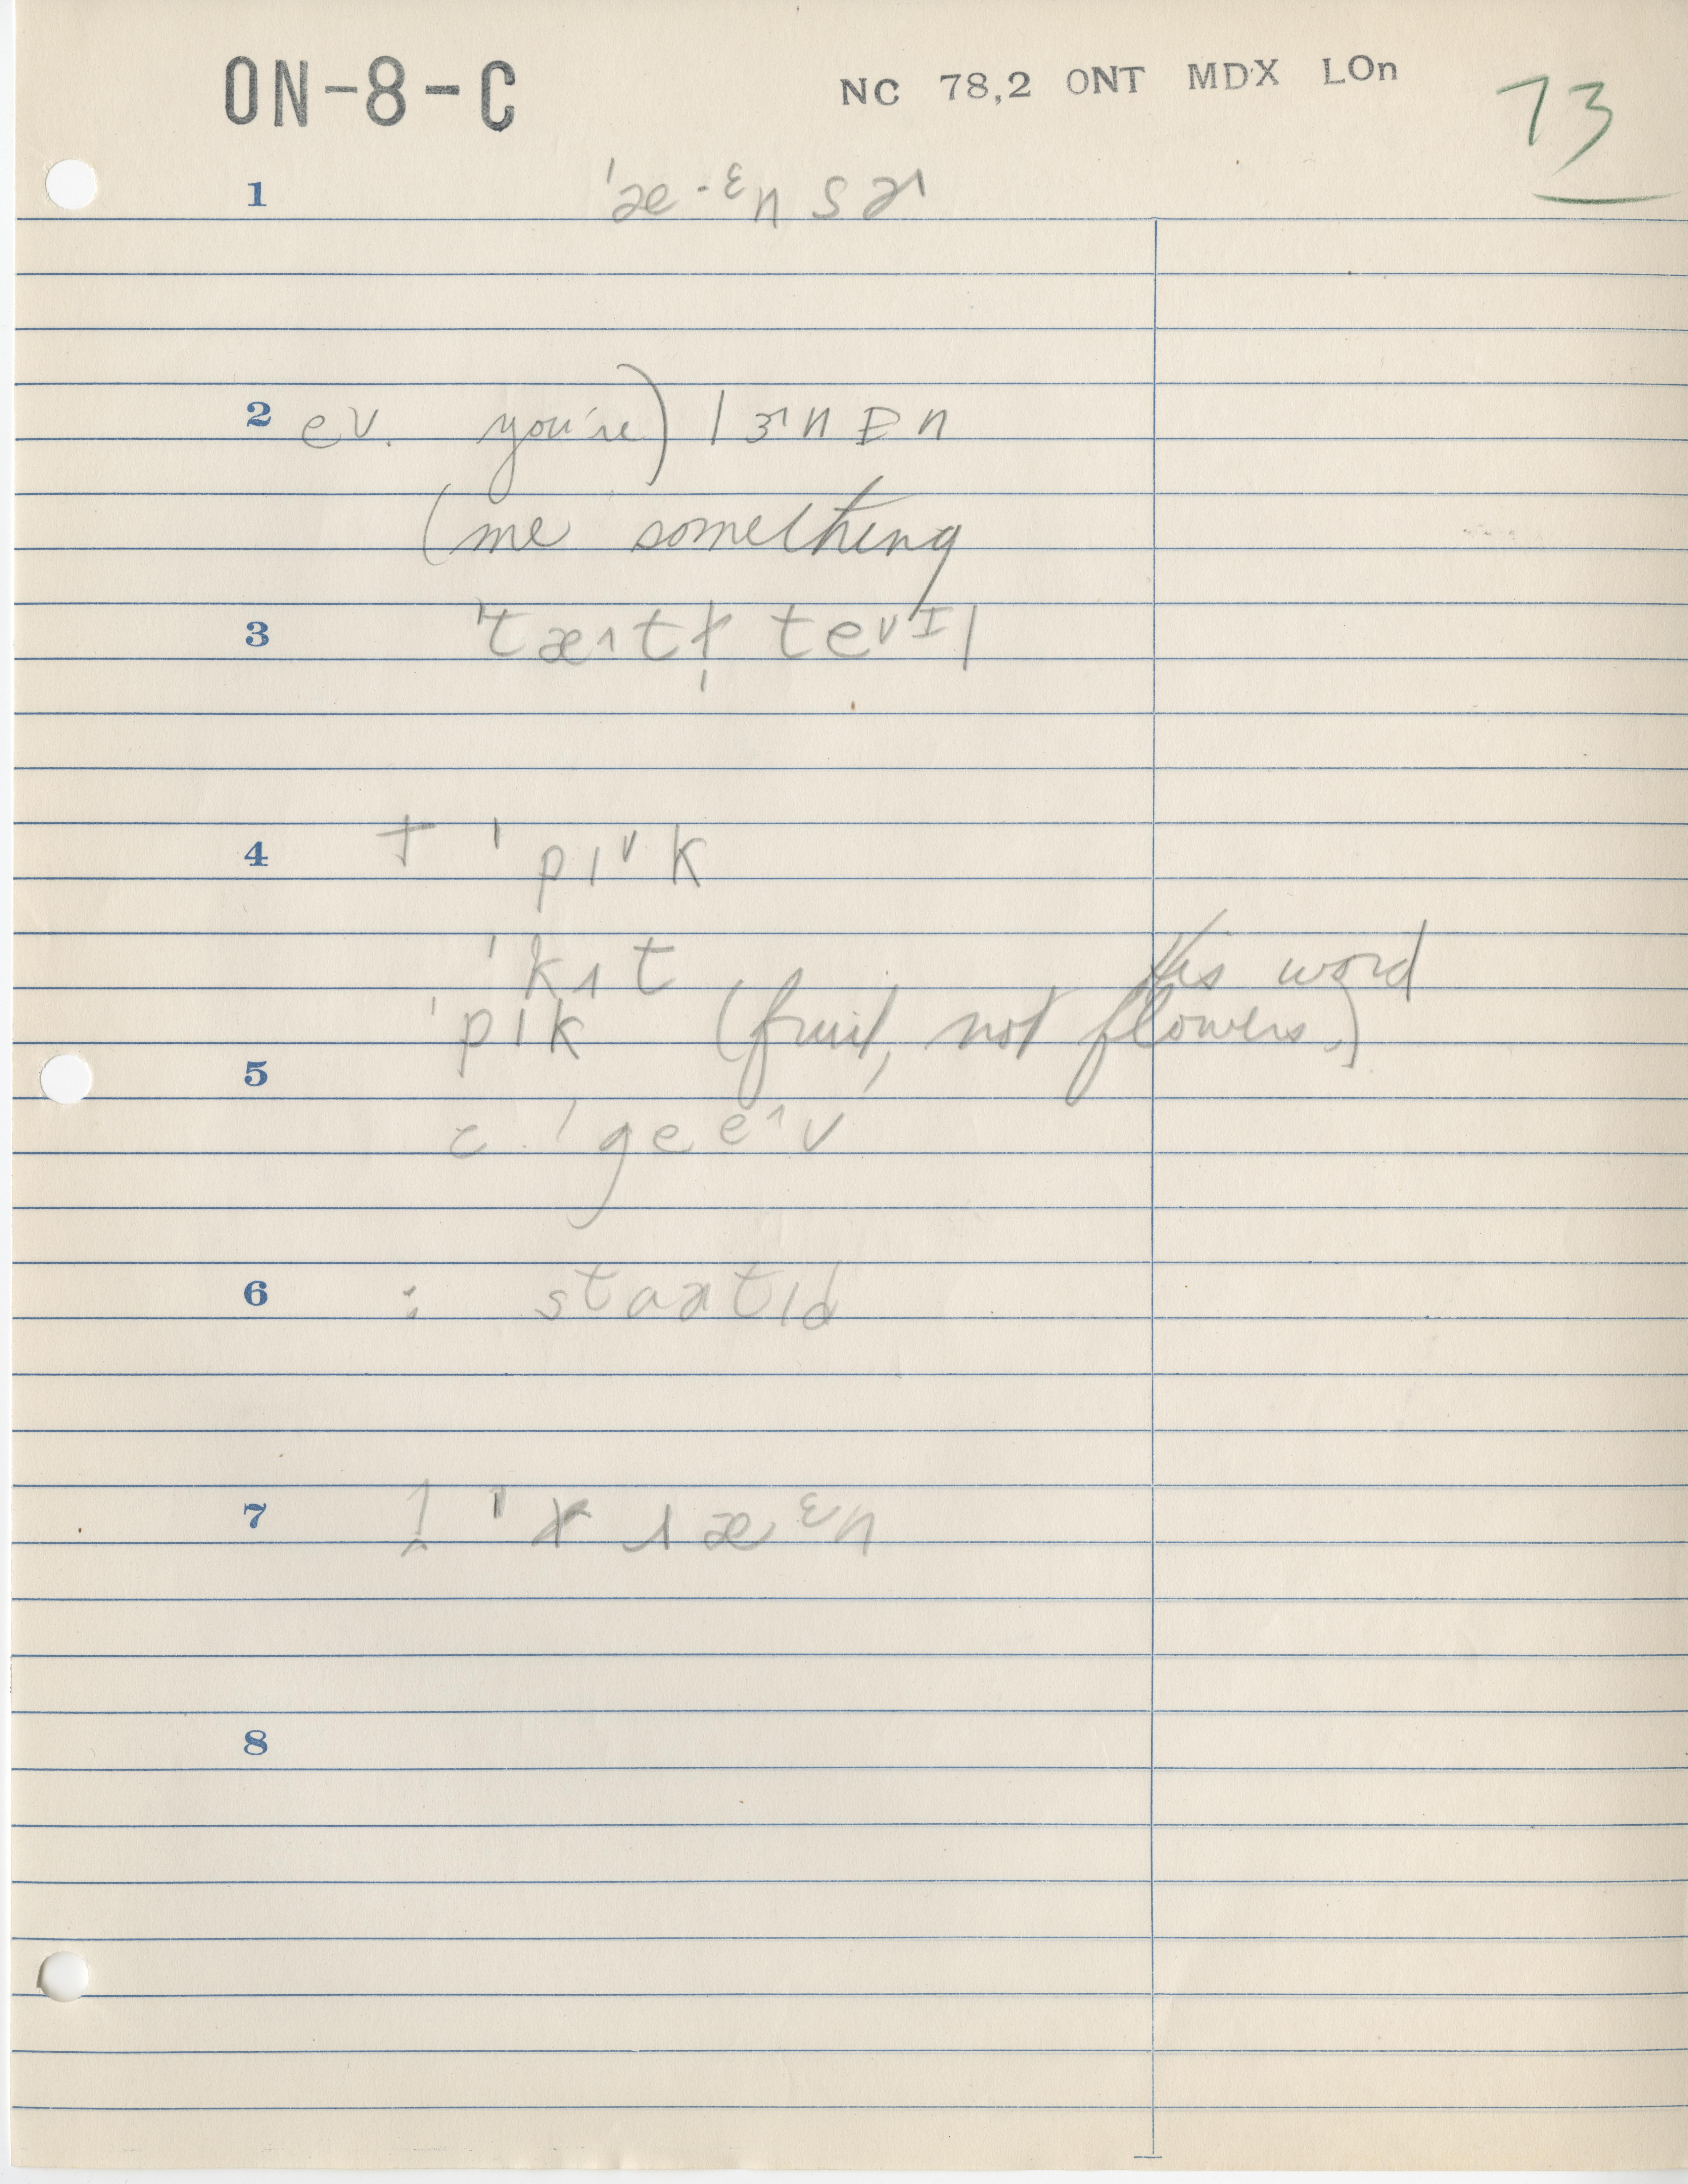 ON-8-C NC 78,2 ONT MDX LOn 73
1 ˈæ·ᵋnsɚ
2 ev. you're) lɜ˞nɪn
(me something
3 ˈtæ˄tl̩ teᵛɪl
4 † ˈpɪ˅k
ˈkʌt this word
ˈpɪk (fruit, not flowers.)
5
c. ˈgeeˆv
6 : staɚtɪd
7
8